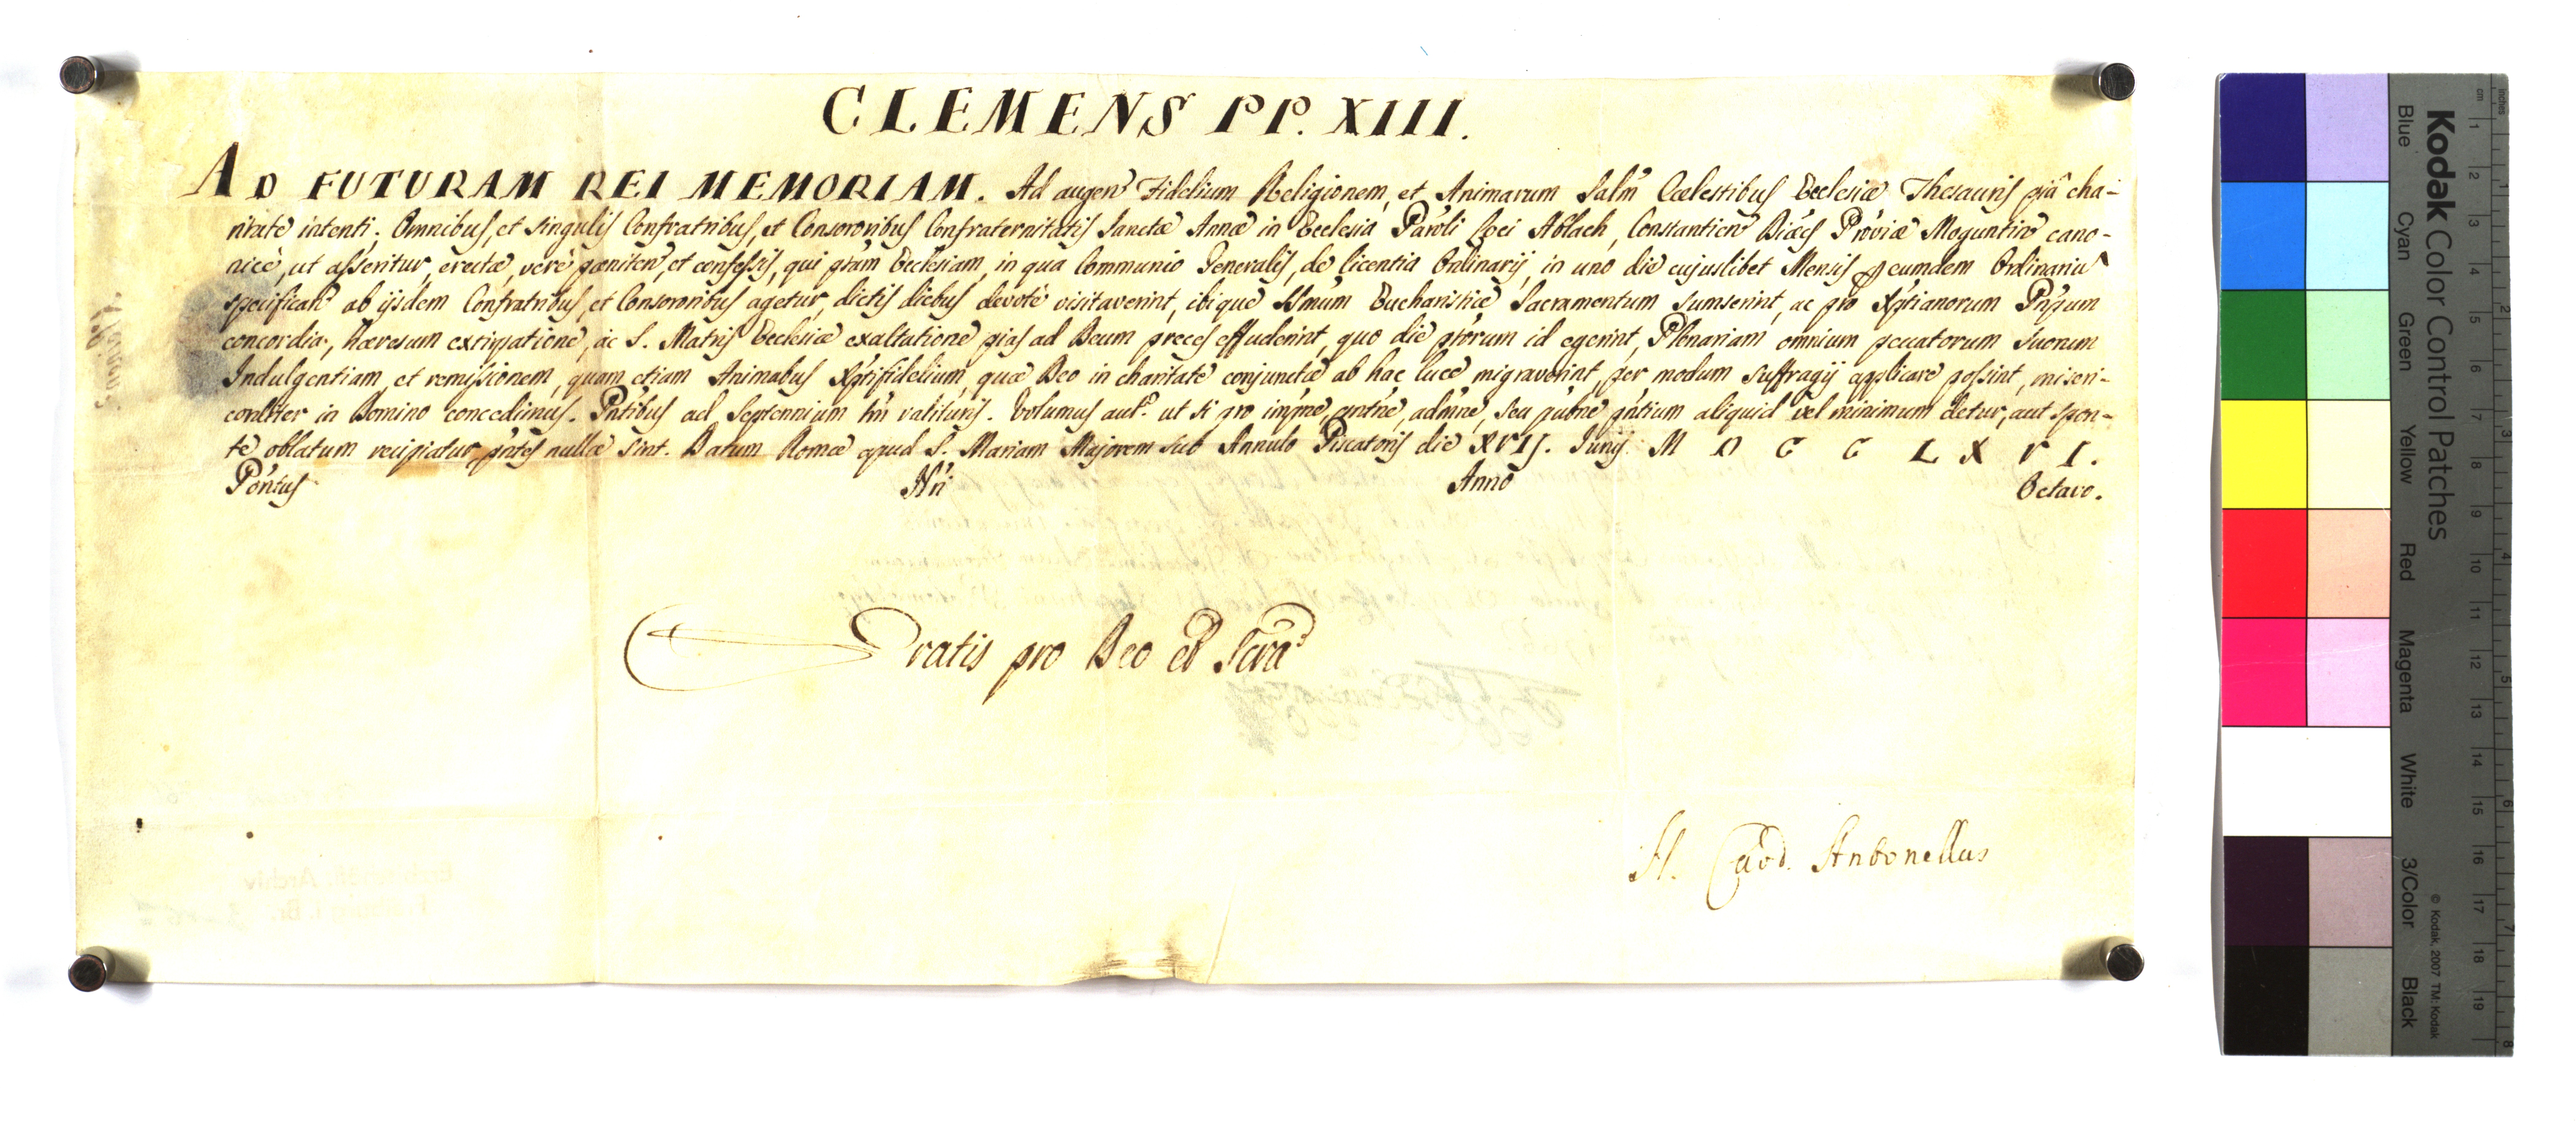 CLEMENS PP. XIII.
AD FUTURAM REI MEMORIAM. Ad augen̄ Fidelium Religionem, et Animarum Salm̄ Cœlestibus Ecclesiæ Thesauris piâ cha-
ritate intenti. Omnibus, et singulis Confratribus, et Consororibus Confraternitatis Sanctæ Annæ in Ecclesia Par̄oli Loci Ablach, Constantien̄ Diœc̄s Prōviæ Moguntin̄ cano-
nicè, ut asseritur, erectæ, verè pœniten̄, et confessis, qui pr̄am Ecclesiam, in qua Communio Generalis, de licentia Ordinarij, in uno die cujuslibet Mensis per eumdem Ordinariū
specifican̄ ab ijsdem Confratribus, et Consororibus agetur, dictis diebus devotè visitaverint, ibique SSm̄um Eucharistiæ Sacramentum sumserint, ac pro Xp̄tianorum Pn̄pum
concordia, hæresum extirpatione, ac S. Matris Ecclesiæ exaltatione pias ad Deum preces effuderint, quo die pr̄orum id egerint, Plenariam omnium peccatorum suorum
Indulgentiam, et remissionem, quam etiam Animabus Xp̄tifidelium, quæ Deo in charitate conjunctæ ab hac luce migraverint, per modum suffragij applicare possint, miseri-
corditer in Domino concedimus. Pn̄tibus ad Septennium tn̄ valituris. Volumus aut. ut si pro imp̄ne, pn̄tne, adm̄ne, seu pub̄ne pn̄tium aliquid vel minimum detur, aut spon-
te oblatum recipiatur, pn̄tes nullæ sint. Datum Romæ apud S. Mariam Majorem sub Annulo Piscatoris die XVIJ. Junij MDCCLXVI.
Pon̄tus Nr̄i Anno Octavo.
Gratis pro Deo et Scrā
N. Card. Antonellus
Kodak Color Control Patches
Blue Cyan Green Yellow Red Magenta White 3/Color Black
© Kodak, 2007 TM: Kodak
inches 1 2 3 4 5 6 7 8
cm 1 2 3 4 5 6 7 8 9 10 11 12 13 14 15 16 17 18 19